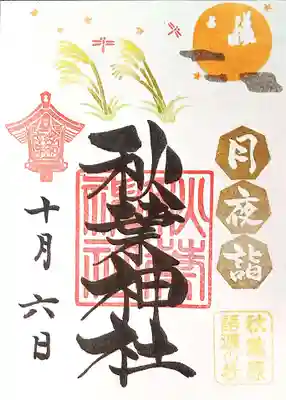 月夜詣
秋葉神社
十月六日